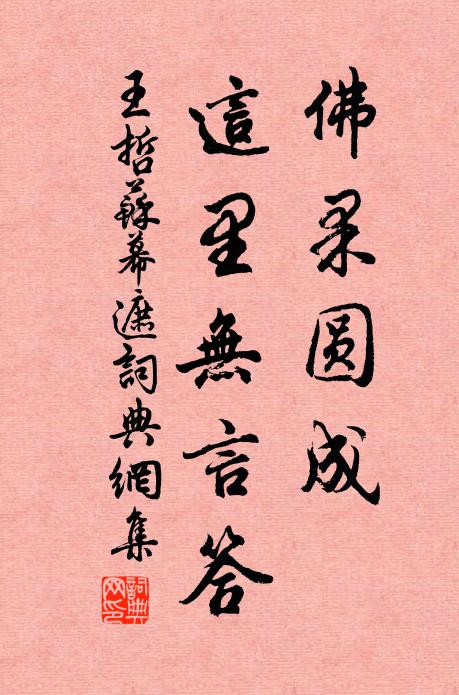 佛果圆成
這里無言答
王哲蘇幕遮詞典網集
詞典网印